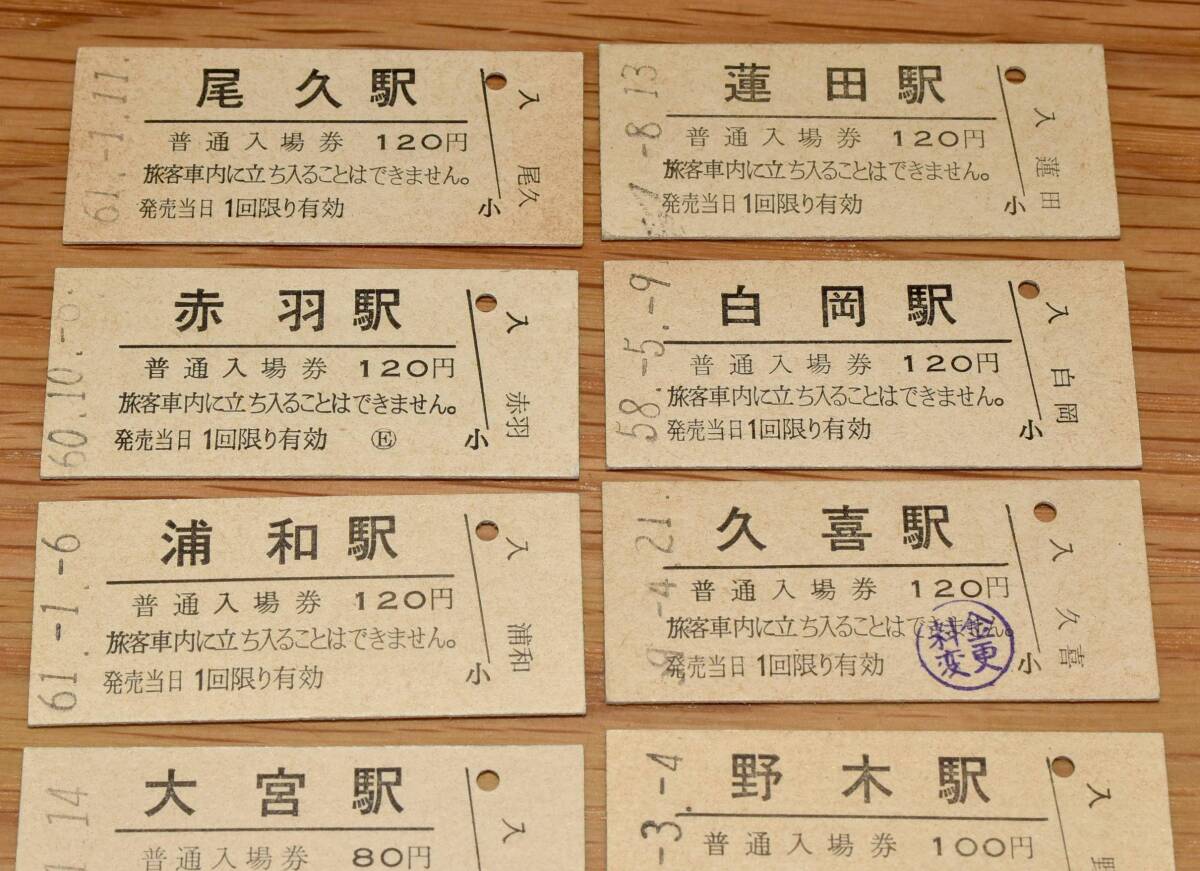 尾久駅
普通入場券 120円
旅客車内に立ち入ることはできません。
発売当日 1回限り有効
小
入
尾久
61.-1.11.
蓮田駅
普通入場券 120円
旅客車内に立ち入ることはできません。
発売当日 1回限り有効
小
入
蓮田
-8 13
赤羽駅
普通入場券 120円
旅客車内に立ち入ることはできません。
発売当日 1回限り有効 Ⓔ
小
入
赤羽
60.10.-
白岡駅
普通入場券 120円
旅客車内に立ち入ることはできません。
発売当日 1回限り有効
小
入
白岡
58.-5.-9
浦和駅
普通入場券 120円
旅客車内に立ち入ることはできません。
発売当日 1回限り有効
小
入
浦和
61.-1.-6
久喜駅
普通入場券 120円
旅客車内に立ち入ることはできません。
発売当日 1回限り有効
小
入
久喜
9.-4.21.
料金
変更
大宮駅
普通入場券 80円
入
14
野木駅
普通入場券 100円
入
野
-3.-4